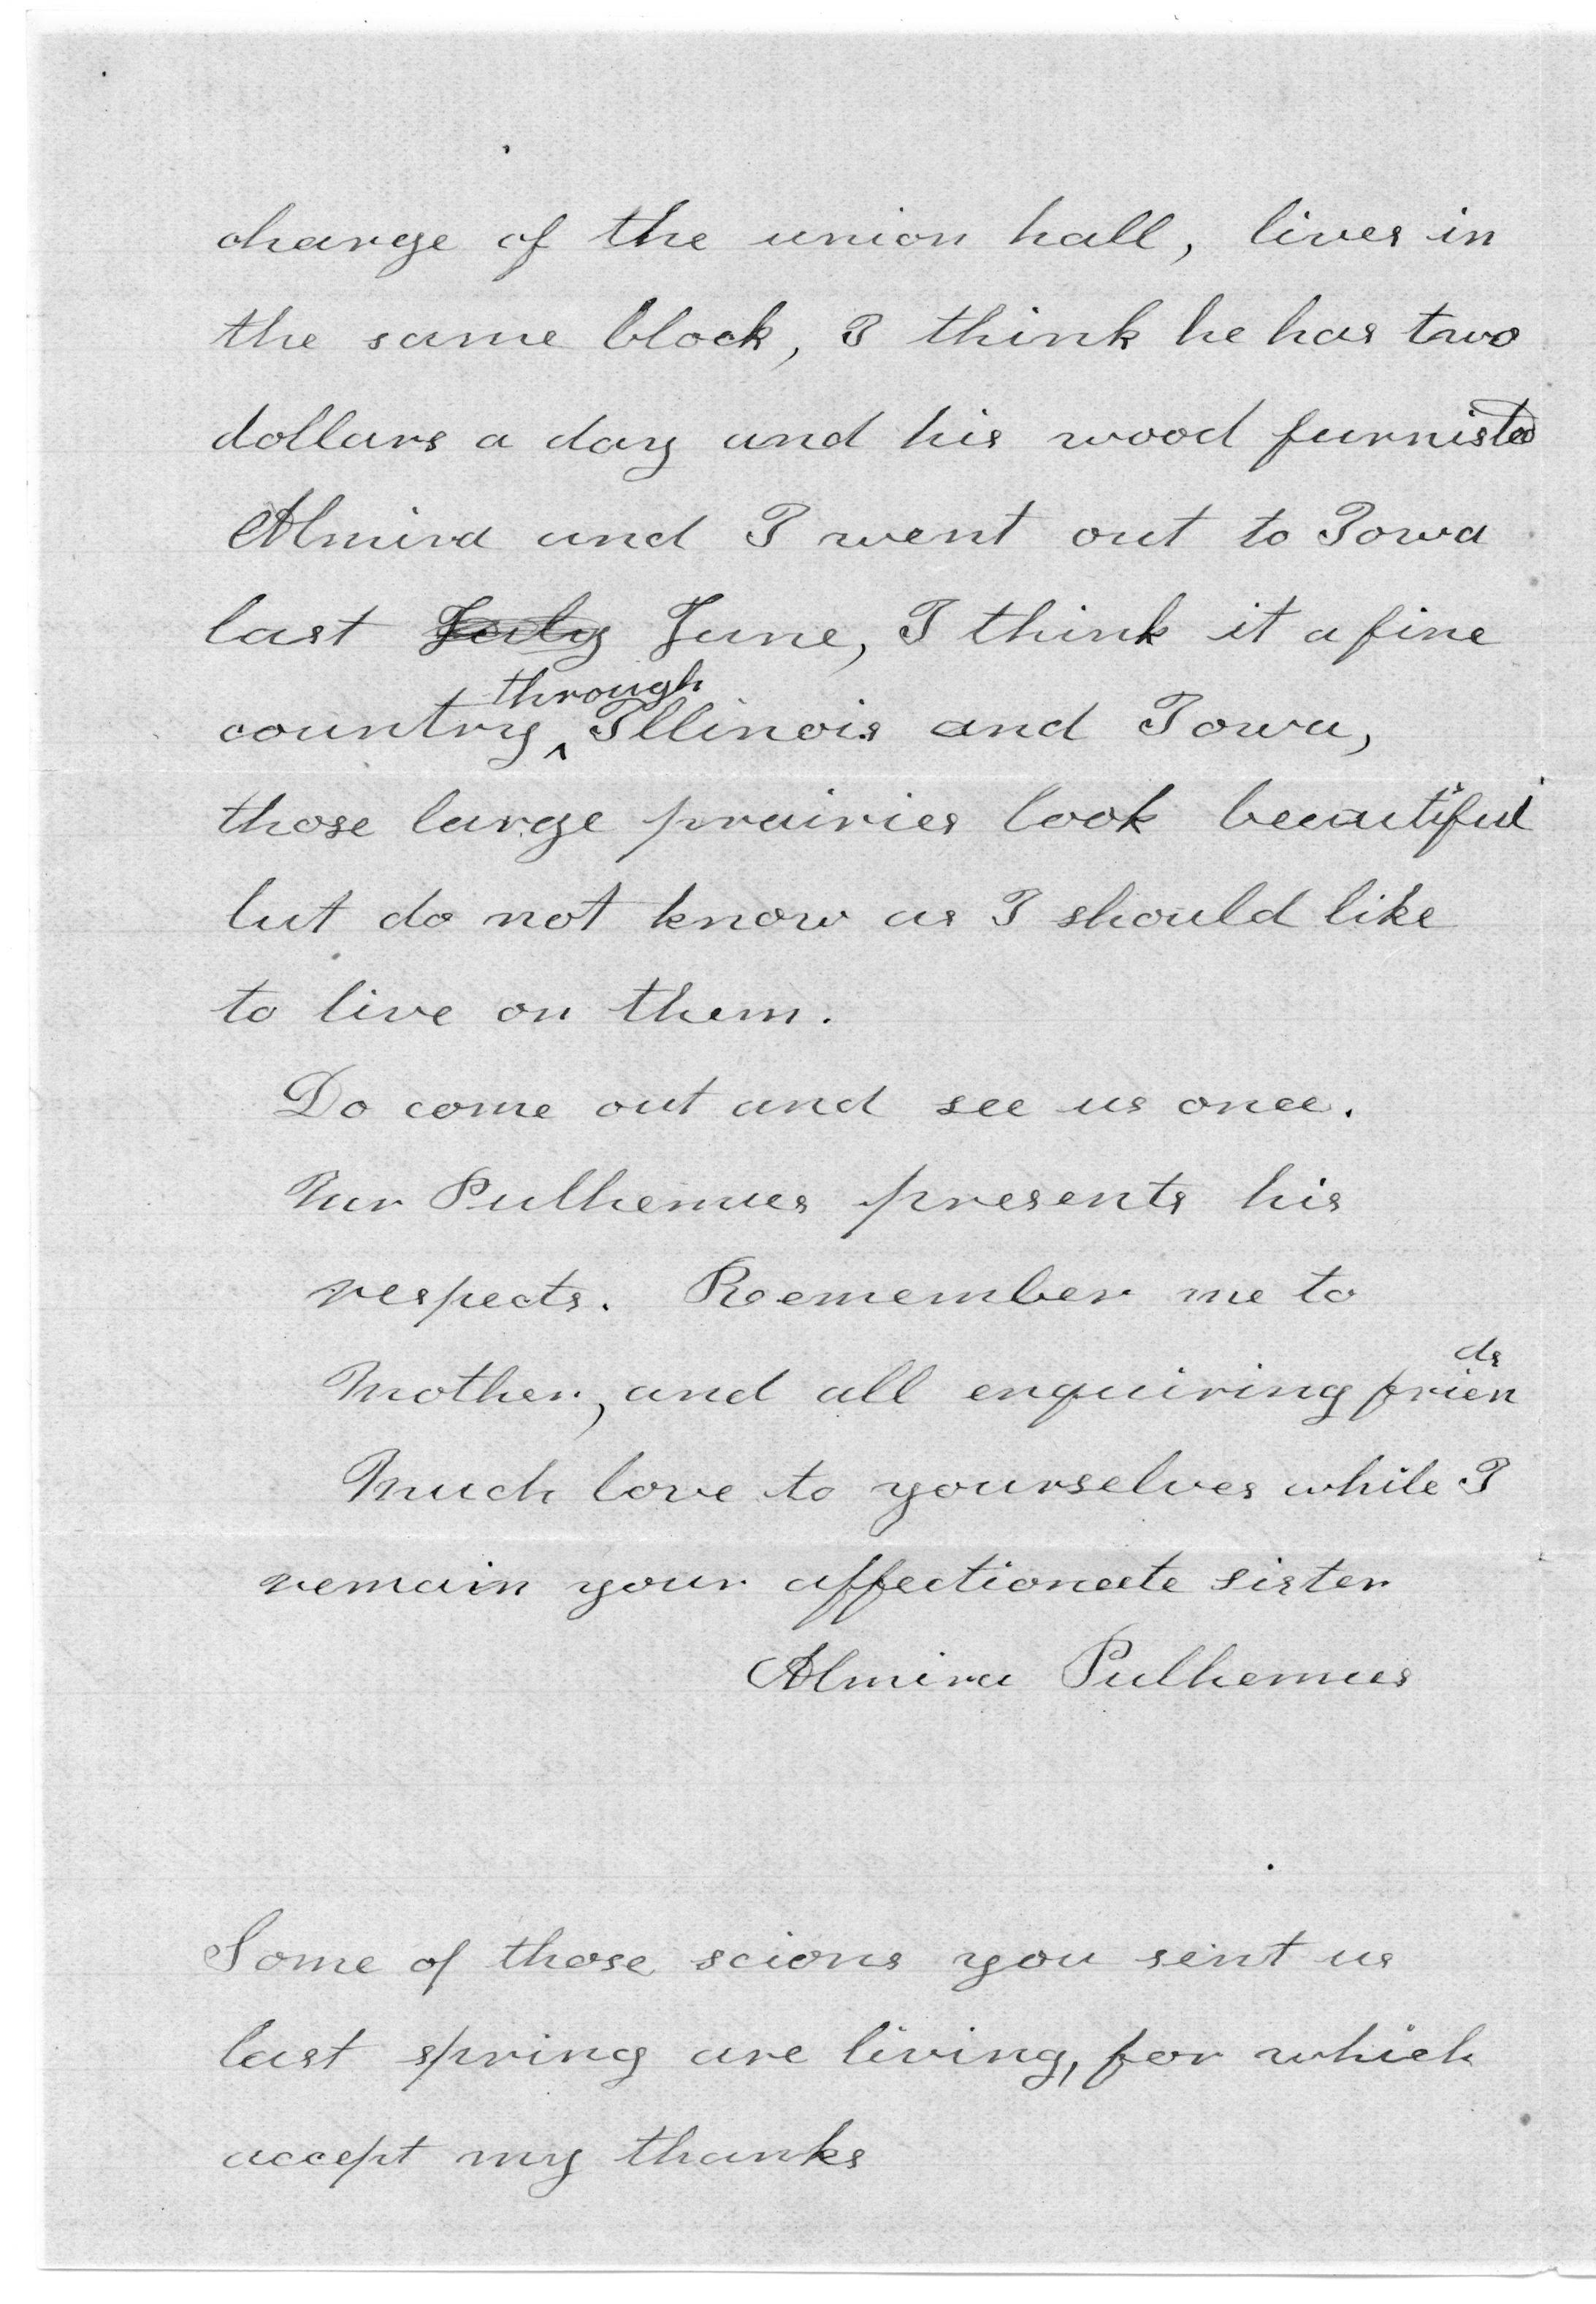 charge of the union hall, lives in
the same block, I think he has two
dollars a day and his wood furnisted
Almira and I went out to Iowa
last July June, I think it a fine
through
country Illinois and Iowa,
those large prairies look beautiful
but do not know as I should like
to live on them.
Do come out and see us once.
Mr Pulhemus presents his
respects. Reemember me to
Mother, and all enquiring frien
ds
Much love to yourselves while I
remain your affectionate sister
Almira Pulhemus
Some of those scions you sent us
last spring are living, for which
accept my thanks